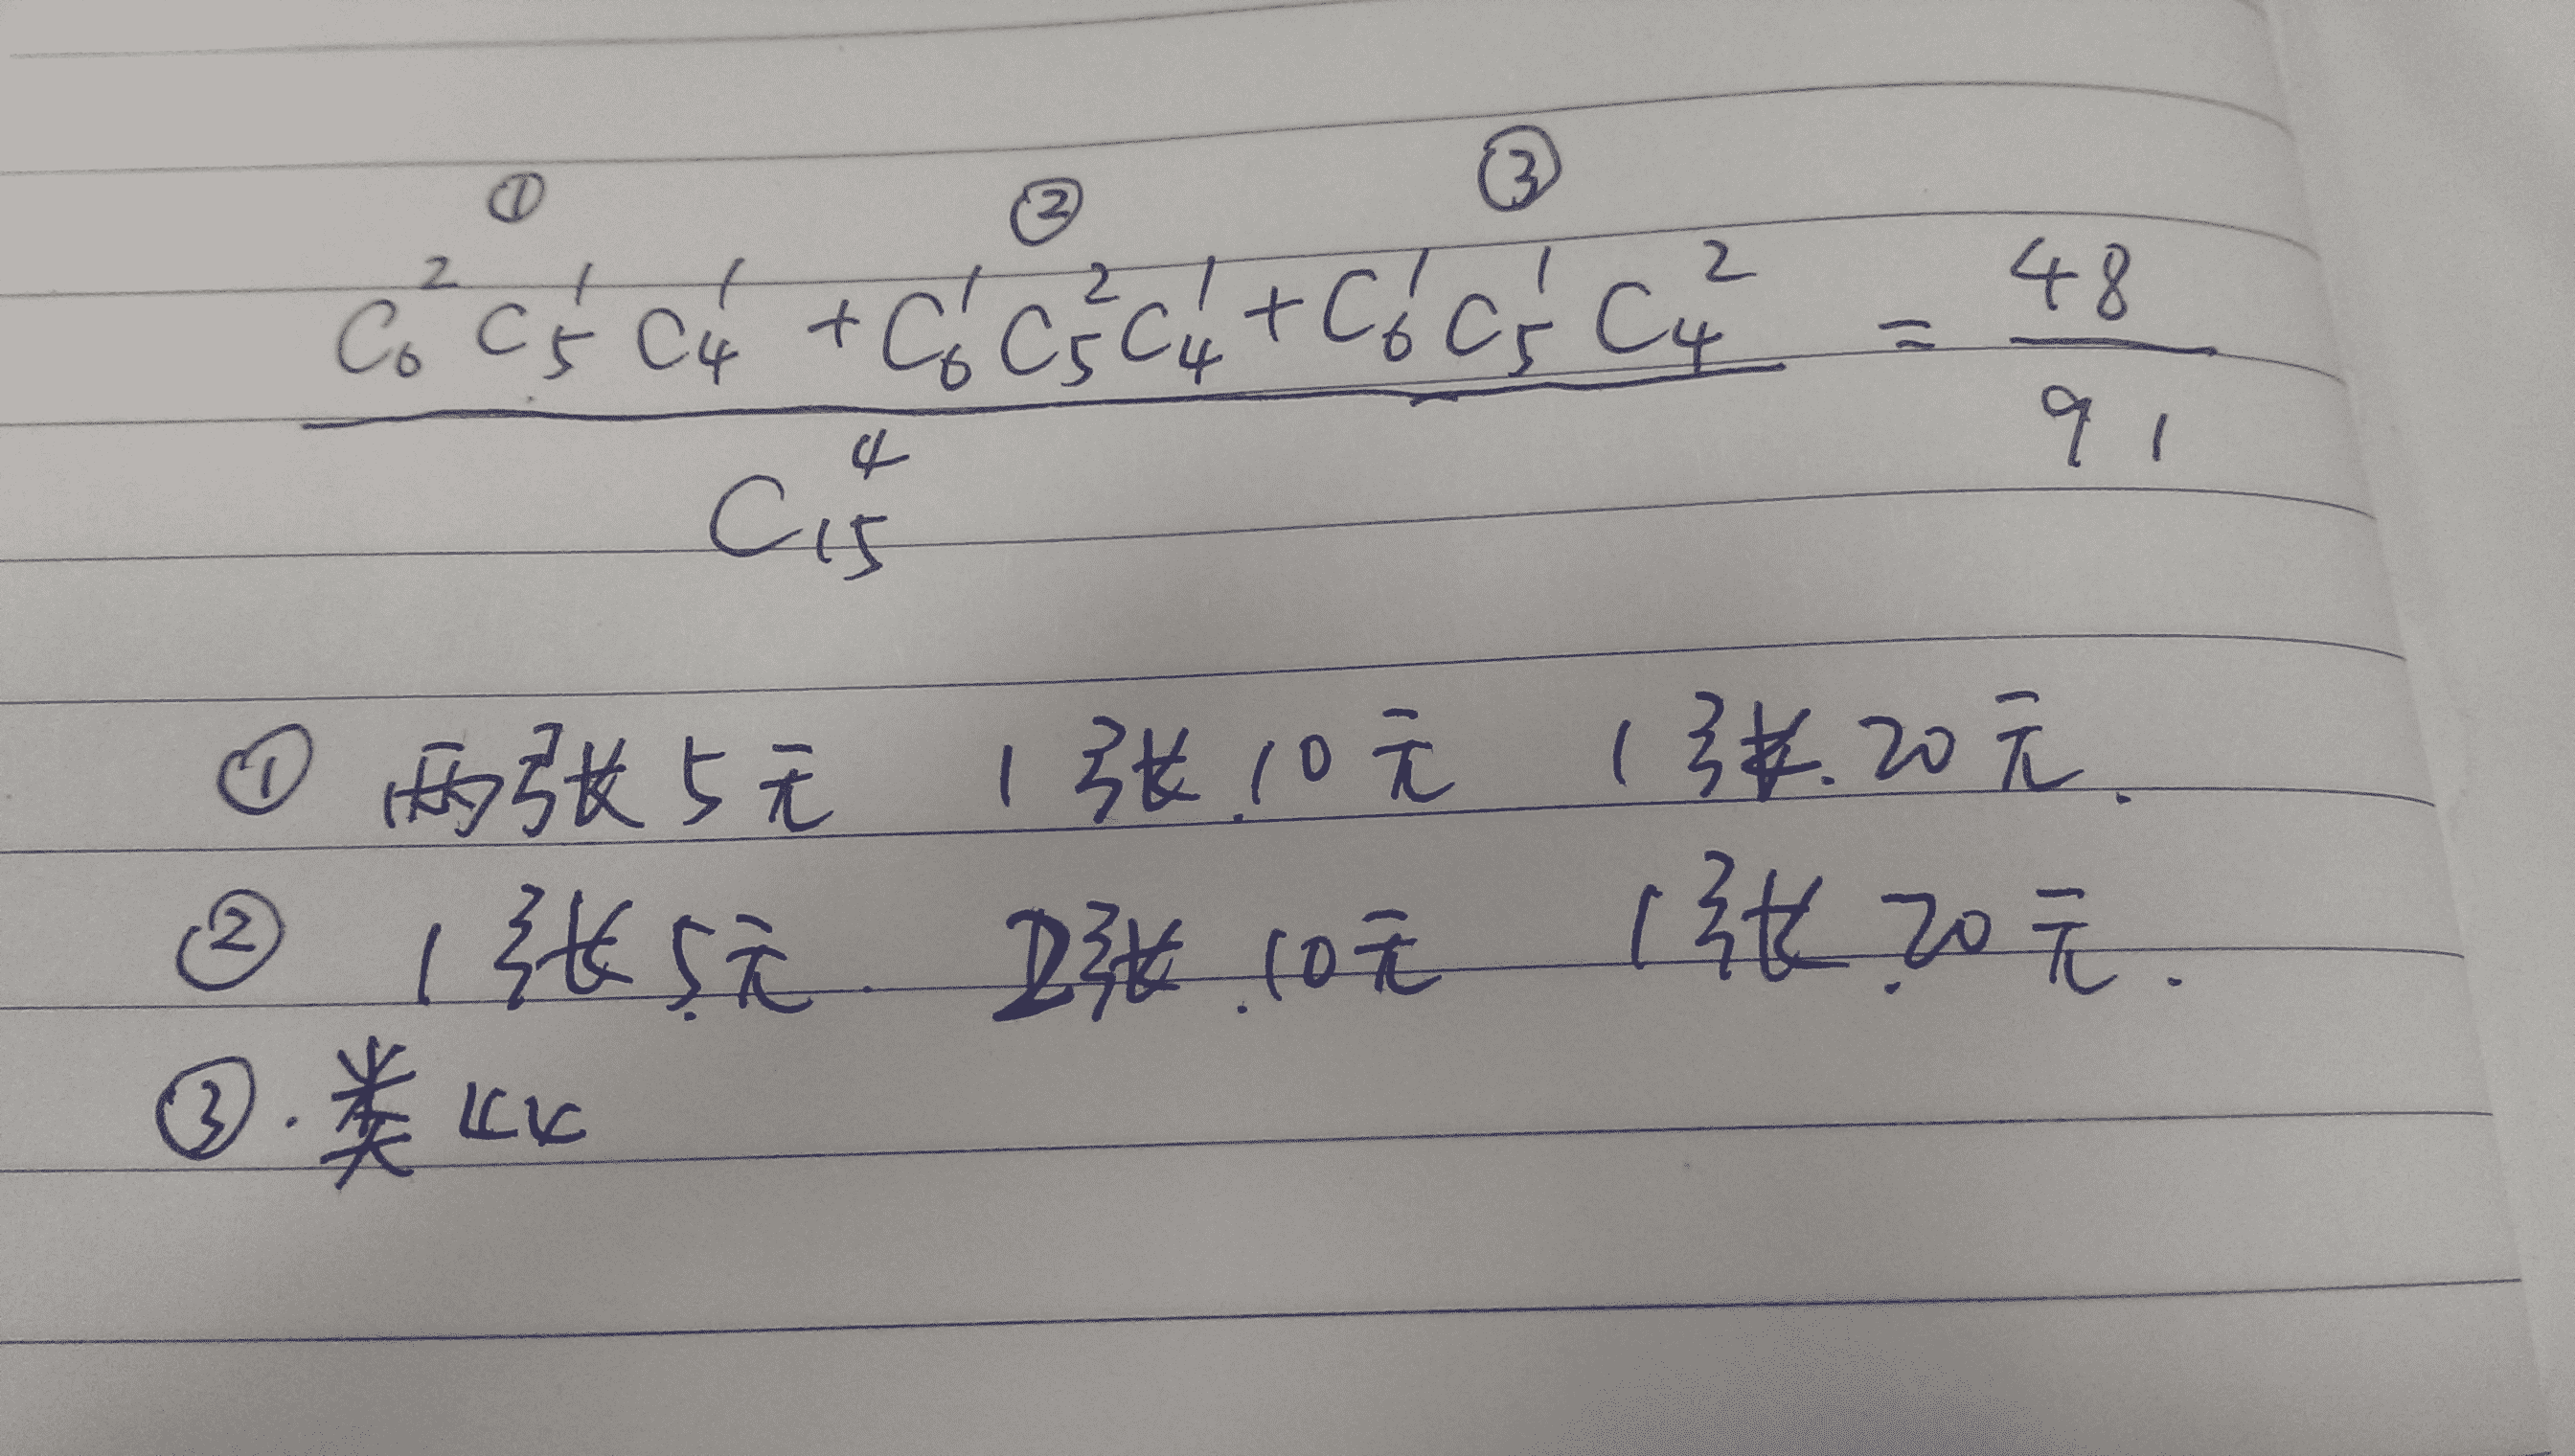 ① ② ③
C₆² C₅¹ C₄¹ + C₆¹ C₅² C₄¹ + C₆¹ C₅¹ C₄² = 48
C₁₅⁴ 91
① 两张5元 1张10元 1张20元.
② 1张5元. 2张10元 1张20元.
③. 类